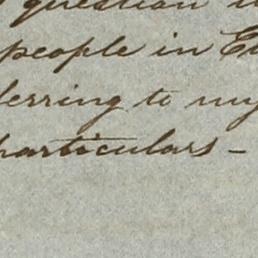 question
people in
ferring to my
particulars –